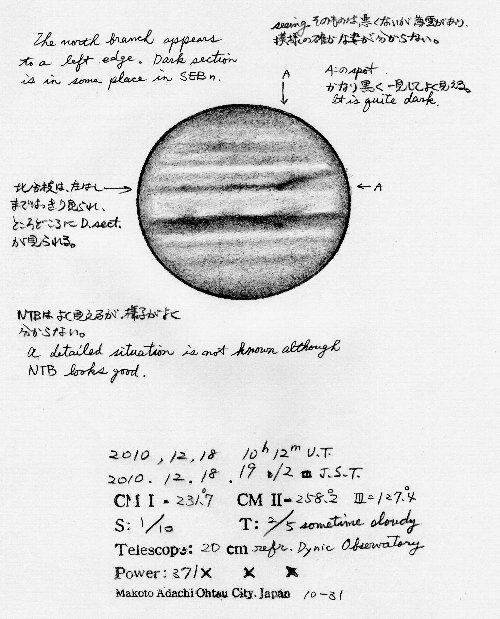 The north branch appears
to a left edge. Dark section
is in some place in SEBn.
seeing そのものは悪くないが薄雲があり、
模様の確かな姿が分からない。
A
A:のspot
かなり黒く一見してよく見える。
It is quite dark.
北分枝は、左はし
まではっきり見られ、
ところどころにD.sect.
が見られる。
A
NTBはよく見えるが、様子がよく
分からない。
A detailed situation is not known although
NTB looks good.
2010, 12, 18 10h 12m U.T.
2010. 12. 18. 19h 12m J.S.T.
CM I = 231°.7 CM II = 258°.2 III = 127°.4
S: 1/10 T: 2/5 sometime cloudy
Telescope: 20 cm refr. Dynic Observatory
Power: 371× × ×
Makoto Adachi Ohtsu City, Japan 10-31